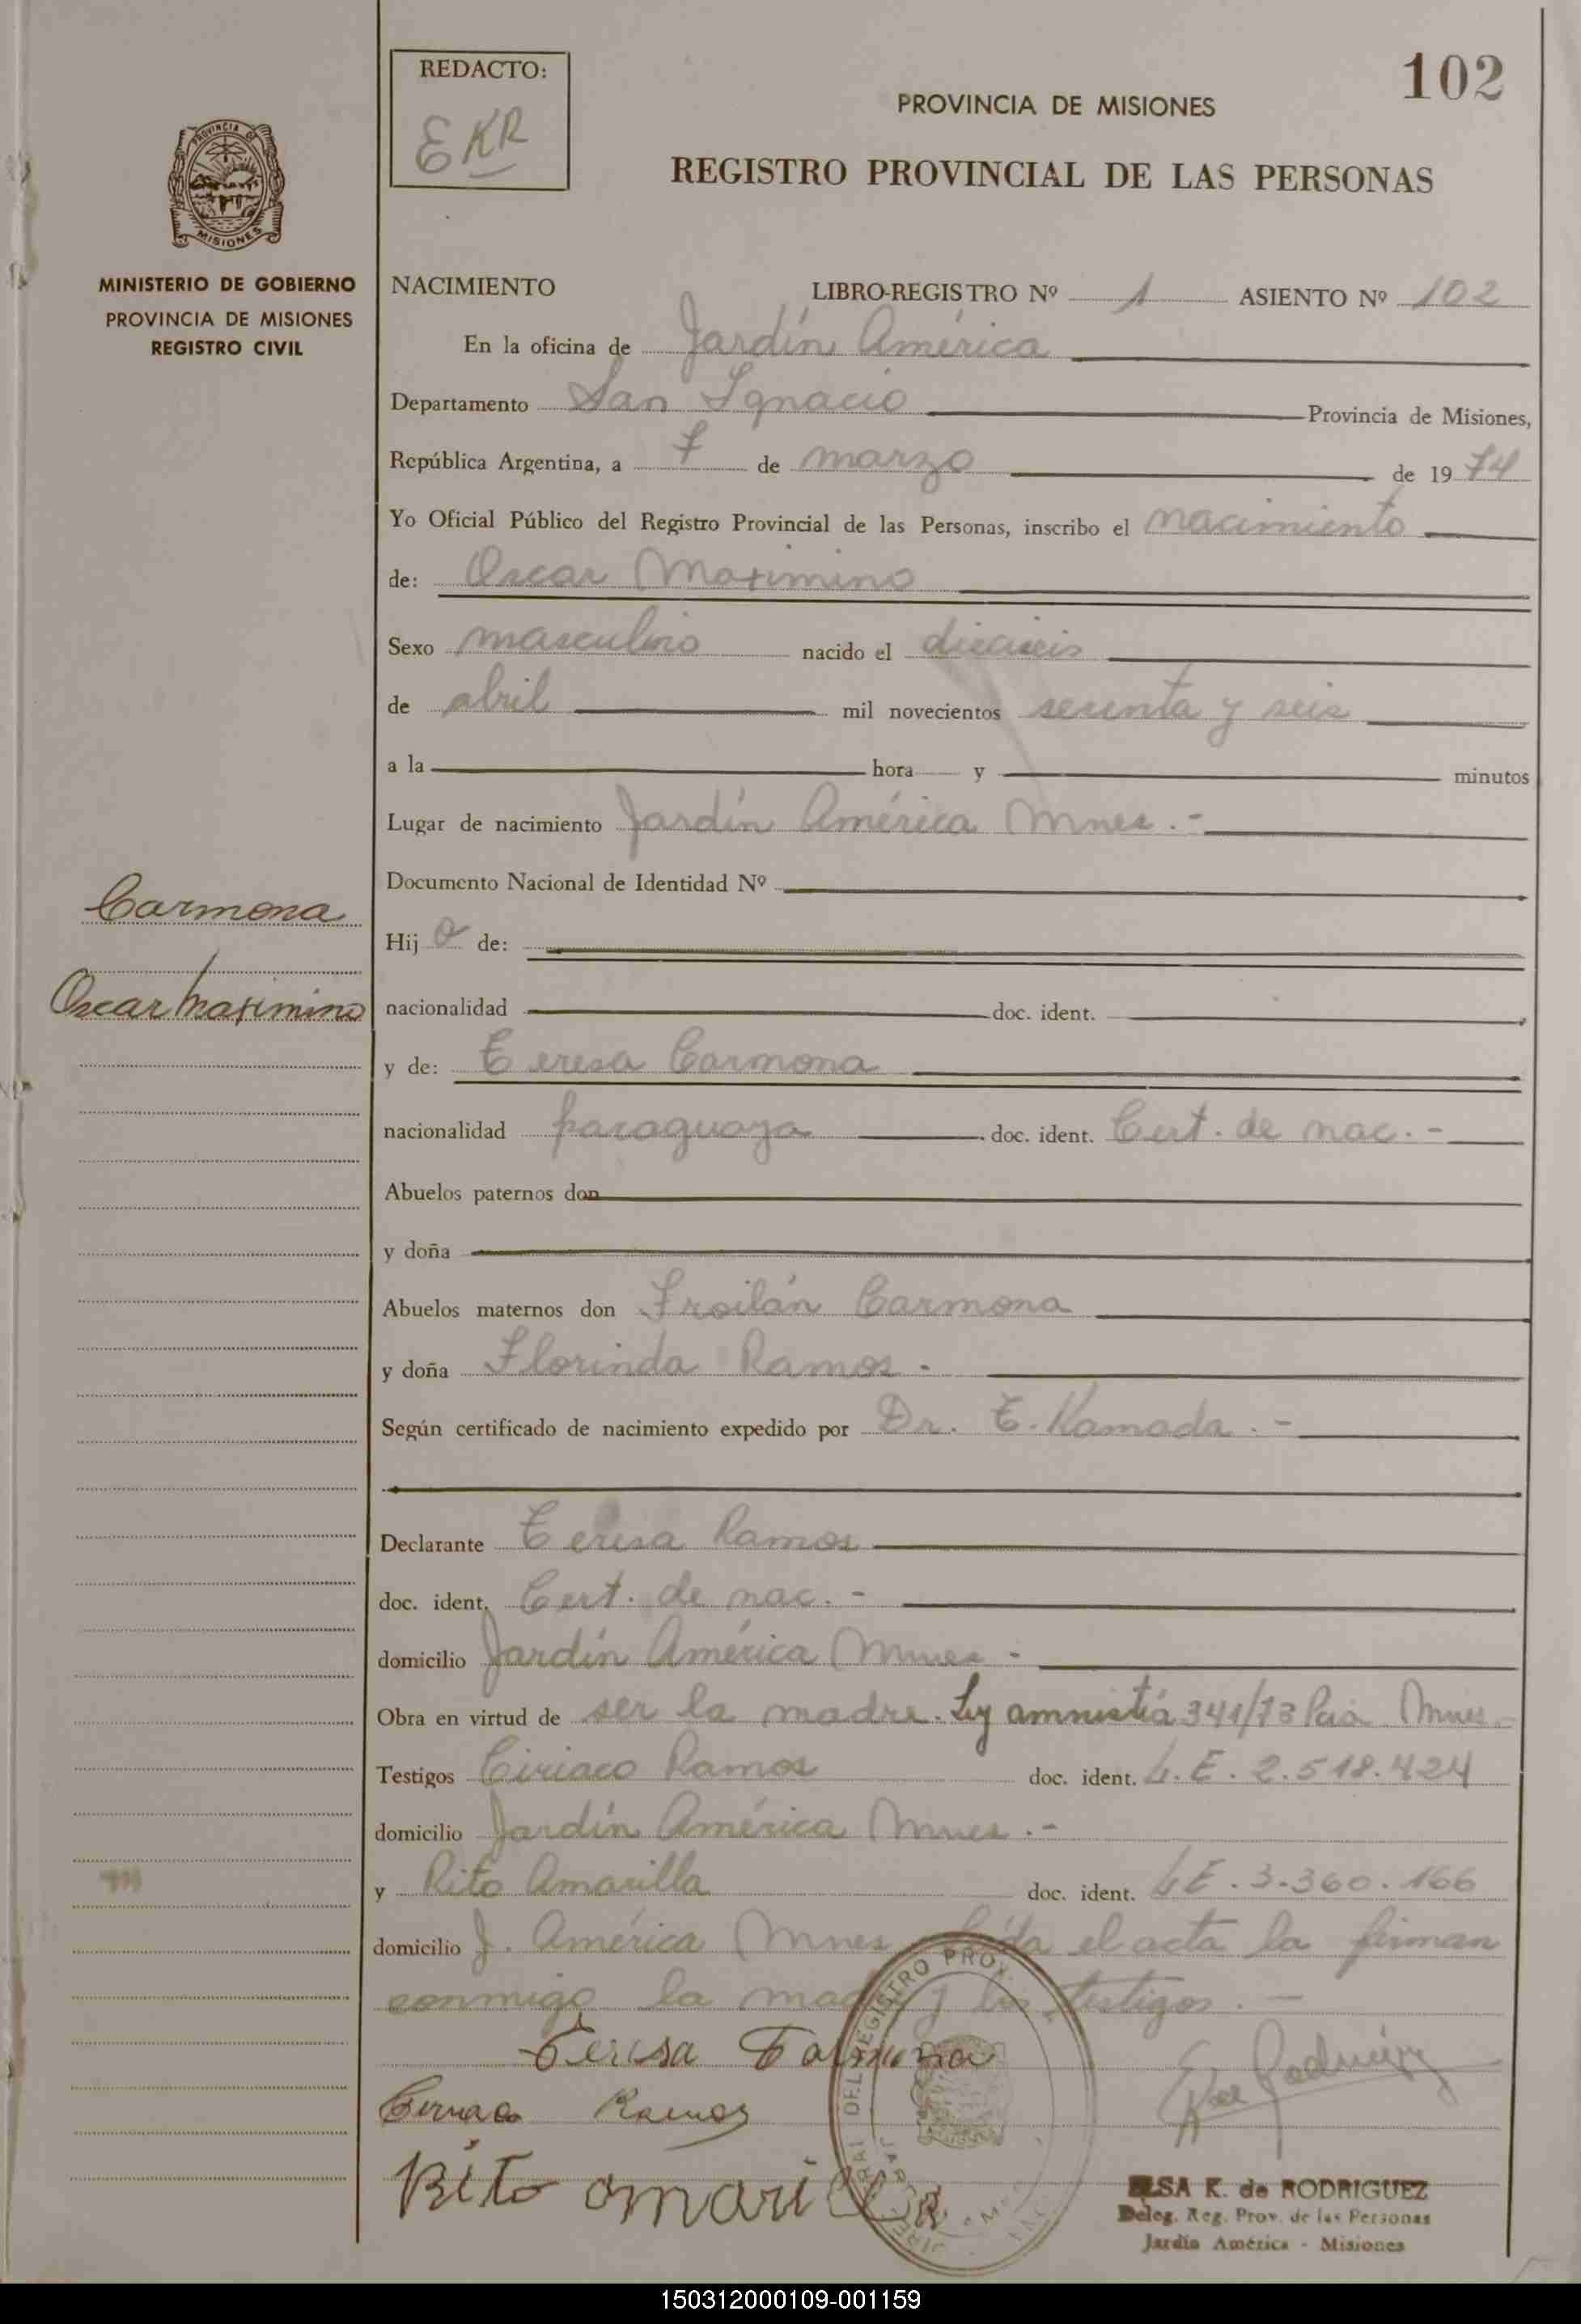 102
REDACTO:
EKR
PROVINCIA DE MISIONES
REGISTRO PROVINCIAL DE LAS PERSONAS
PROVINCIA DE
MISIONES
MINISTERIO DE GOBIERNO
PROVINCIA DE MISIONES
REGISTRO CIVIL
NACIMIENTO LIBRO-REGISTRO Nº 1 ASIENTO Nº 102
En la oficina de Jardín América
Departamento San Ignacio Provincia de Misiones,
República Argentina, a 7 de marzo de 1974
Yo Oficial Público del Registro Provincial de las Personas, inscribo el nacimiento
de: Oscar Maximino
Sexo masculino nacido el dieciseis
de abril mil novecientos sesenta y seis
a la hora y minutos
Lugar de nacimiento Jardín América Mnes.-
Documento Nacional de Identidad Nº
Carmona
Hijo de:
Oscar Maximino
nacionalidad doc. ident.
y de: Teresa Carmona
nacionalidad paraguaya doc. ident. Cert. de nac.-
Abuelos paternos don
y doña
Abuelos maternos don Froilán Carmona
y doña Florinda Ramos.
Según certificado de nacimiento expedido por Dr. T. Kamada.-
Declarante Teresa Ramos
doc. ident. Cert. de nac.-
domicilio Jardín América Mnes-
Obra en virtud de ser la madre. Ley amnistía 341/73 Pcia Mnes-
Testigos Ciriaco Ramos doc. ident. L.E. 2.518.424
domicilio Jardín América Mnes.-
y Rito Amarilla doc. ident. L.E. 3.360.166
domicilio J. América Mnes leída el acta la firman
conmigo la madre y los testigos.-
Teresa Carmona
Ramos
Rito amarilla
ELSA K. de RODRIGUEZ
Deleg. Reg. Prov. de las Personas
Jardín América - Misiones
150312000109-001159